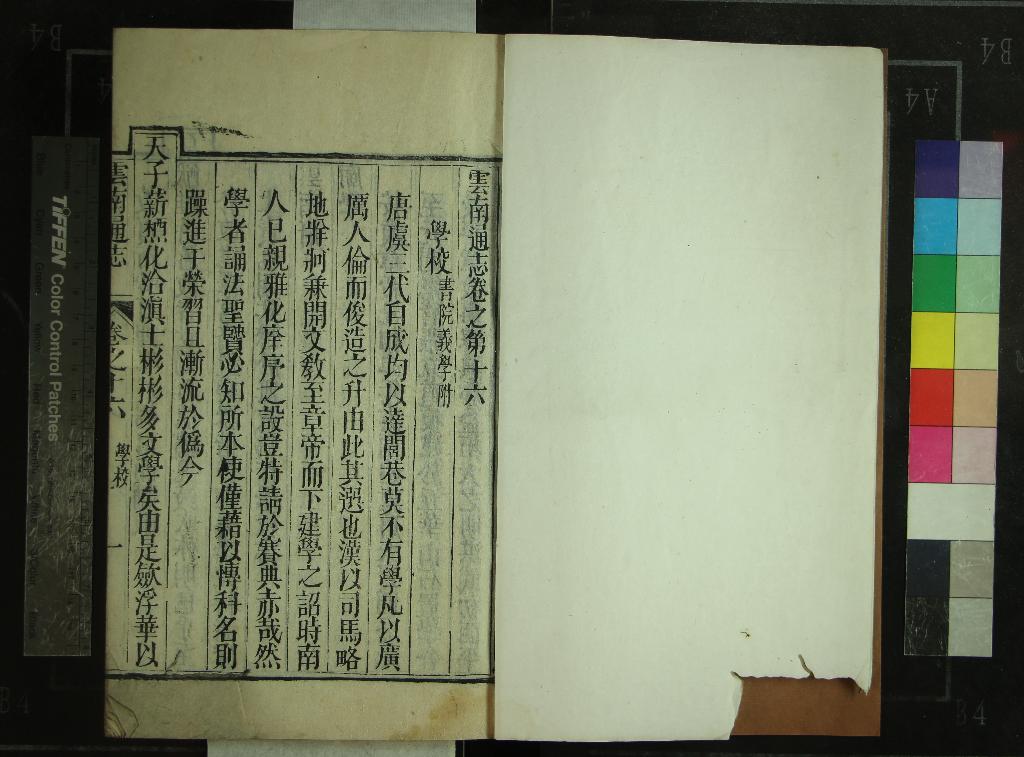 雲南通志卷之第十六
學校書院義學附
唐虞三代自成均以達閭巷莫不有學凡以廣
厲人倫而俊造之升由此其選也漢以司馬略
地牂牁兼開文教至章帝而下建學之詔時南
人已親雅化庠序之設豈特請於賽典赤哉然
學者誦法聖賢必知所本使僅藉以博科名則
躁進干榮習且漸流於僞今
天子薪槱化洽滇士彬彬多文學矣由是斂浮華以
雲南通志
卷之十六
學校
一
TIFFEN Color Control Patches
B4
B4
A4
B4
B4